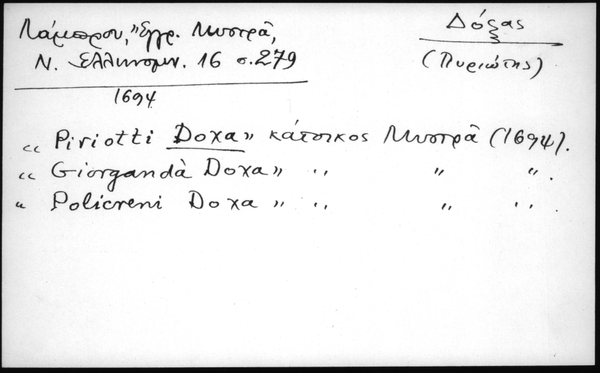 Λάμπρου, "Έγγρ. Μυστρᾶ,
Ν. Ελληνομν. 16 σ. 279
1694
Δόξας
(Πυριώτης)
"Piriotti Doxa" κάτοικος Μυστρᾶ (1694).
"Giorgandà Doxa" " " ".
"Policreni Doxa" " " "